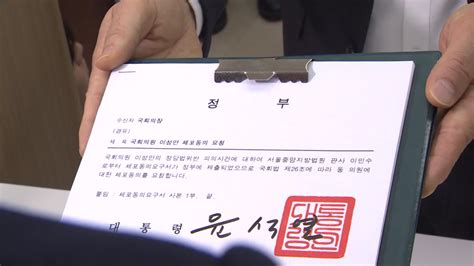 정 부
수신자 국회의장
(경유)
제 목 국회의원 이성만 체포동의 요청
국회의원 이성만의 정당법위반 피의사건에 대하여 서울중앙지방법원 판사 이민수
로부터 체포동의요구서가 정부에 제출되었으므로 국회법 제26조에 따라 동 의원에
대한 체포동의를 요청합니다.
붙임 : 체포동의요구서 사본 1부. 끝.
대 통 령 윤석열